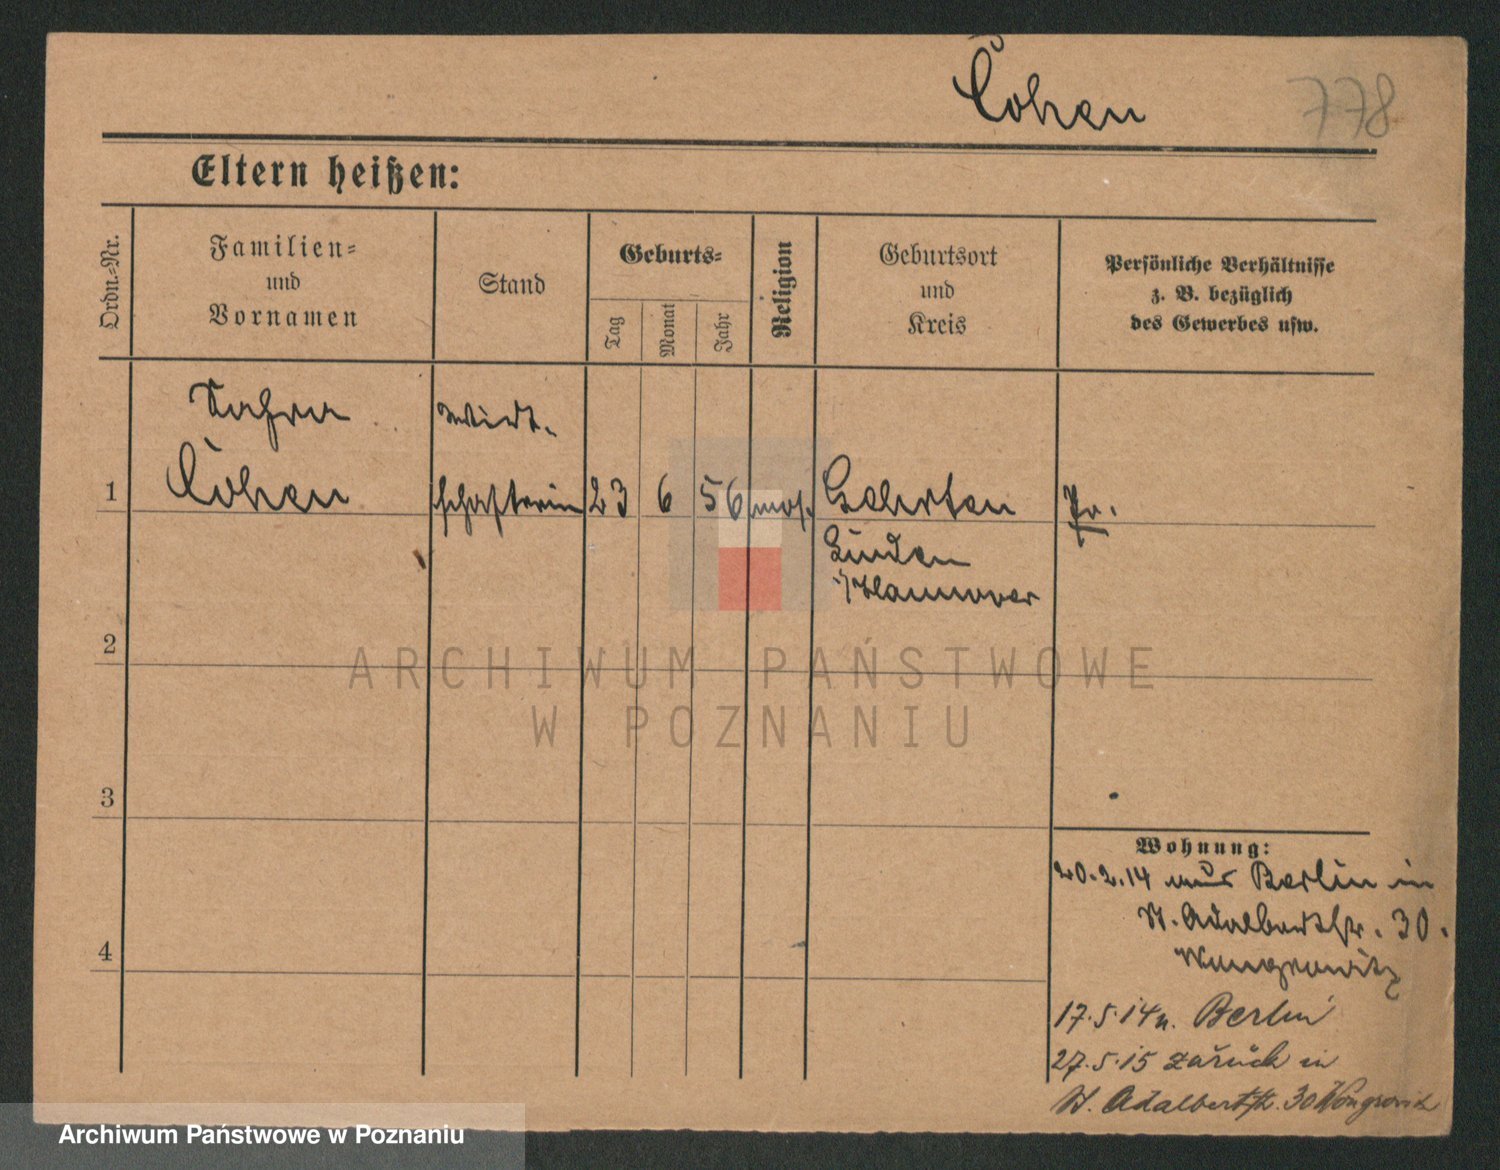 Cohen 778
Eltern heißen:
Ordn.=Nr.
Familien=
und
Vornamen
Stand
Geburts=
Tag
Monat
Jahr
Religion
Geburtsort
und
Kreis
Persönliche Verhältnisse
z. B. bezüglich
des Gewerbes usw.
Wirt-
1 Cohen schafterin 23 6 56 mos. Gehrten Pr.
Linden
Hannover
2
3
4
Wohnung:
20.2.14 aus Berlin in
St. Adalbertstr. 30.
Wongrowitz
17.5.14 n. Berlin
27.5.15 zurück in
St. Adalbertstr. 30 Wongrowitz
ARCHIWUM PAŃSTWOWE
W POZNANIU
Archiwum Państwowe w Poznaniu